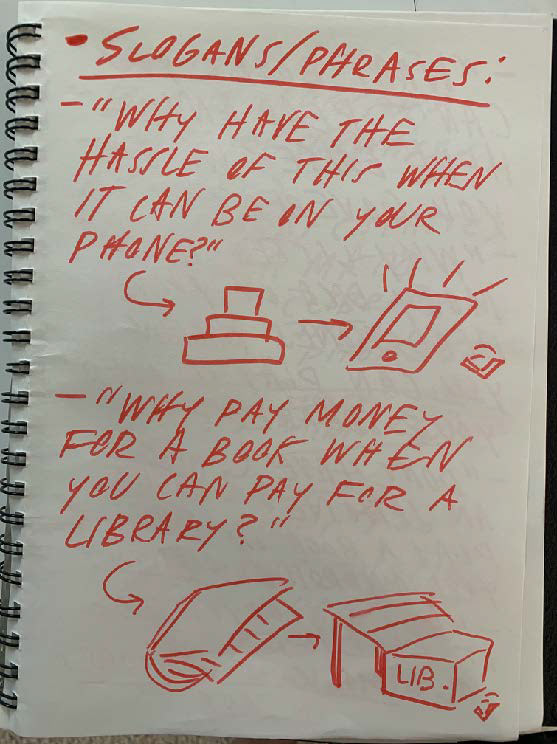 • SLOGANS/PHRASES:
- "WHY HAVE THE
HASSLE OF THIS WHEN
IT CAN BE ON YOUR
PHONE?"
- "WHY PAY MONEY
FOR A BOOK WHEN
YOU CAN PAY FOR A
LIBRARY?"
LIB.